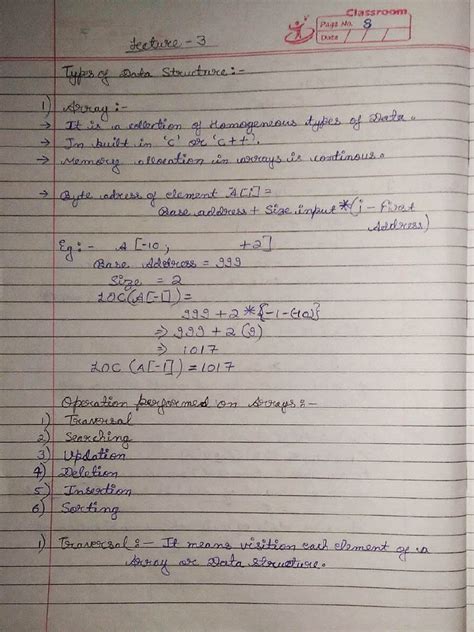 Classroom
Page No. 8
Date
Lecture - 3
Types of Data Structure :-
1) Array :-
→ It is a collection of Homogeneous types of Data.
→ In built in 'C' or 'C++'.
→ Memory allocation in arrays is continous.
→ Byte adress of element A[i] =
Base address + Size input * (i - First
Address)
Eg :- A [-10, +2]
Base Address = 999
Size = 2
LOC (A[-1]) =
999 + 2 * {-1-(-10)}
⇒ 999 + 2 (9)
⇒ 1017
LOC (A[-1]) = 1017
Operation performed on Arrays :-
1) Traversal
2) Searching
3) Updation
4) Deletion
5) Insertion
6) Sorting
1) Traversal :- It means visition each element of a
Array or Data Structure.